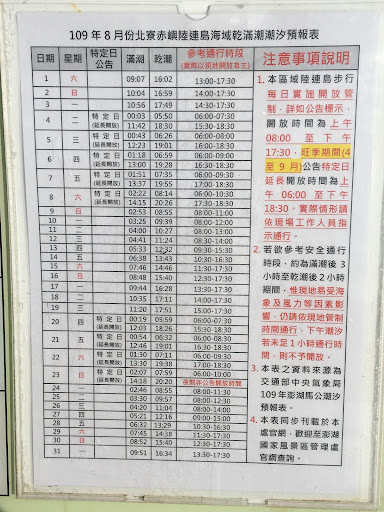 109 年 8 月份北寮赤嶼陸連島海域乾滿潮潮汐預報表
日期 星期 特定日公告 滿潮 乾潮 參考通行時段 (實際以現地開放為主)
1 六 09:07 16:02 13:00-17:30
2 日 10:04 16:59 14:00-17:30
3 一 10:56 17:49 14:30-17:30
4 二 特定日 (延長開放) 00:03 05:50 06:00-07:30
11:42 18:30 15:30-18:30
5 三 特定日 (延長開放) 00:43 06:26 06:00-08:00
12:23 19:01 16:00-18:30
6 四 特定日 (延長開放) 01:18 06:59 06:00-09:00
13:00 19:28 16:30-18:30
7 五 特定日 (延長開放) 01:51 07:35 06:00-09:30
13:37 19:55 17:00-18:30
8 六 特定日 (延長開放) 02:22 08:14 06:00-10:30
14:15 20:26 17:30-18:30
9 日 02:53 08:55 08:00-11:00
10 一 03:25 09:39 08:00-12:00
11 二 04:00 10:27 08:00-12:30
12 三 04:41 11:24 08:30-13:30
13 四 05:33 12:32 09:30-15:30
14 五 06:38 13:45 10:30-16:30
15 六 07:46 14:46 11:30-17:30
16 日 08:48 15:40 12:30-17:30
17 一
18 二 10:35 17:12 14:00-17:30
19 三 11:20 17:51 15:00-17:30
20 四 特定日 (延長開放) 00:19 06:00-07:30
12:03 18:26 15:30-18:30
21 五 特定日 (延長開放) 00:54 06:32 06:00-08:30
12:46 19:01 16:30-18:30
22 六 特定日 (延長開放) 01:30 07:11 06:00-09:00
13:30 19:38 17:00-18:30
23 日 特定日 (延長開放) 02:07 07:59 06:00-10:00
14:18 20:20 夜間非公告開放時間
24 一 02:45 08:58 08:00-11:00
25 二 03:28 08:00-11:30
26 三 04:20 11:04 08:00-14:00
27 四 05:21 12:16 09:00-15:00
28 五 06:32 13:29 10:30-16:30
29 六 07:44 14:38 11:30-17:30
30 日 08:52 15:40 12:30-17:30
31 一 09:51 16:34 13:30-17:30
注意事項說明
1. 本區域陸連島步行
每日實施開放管
制，詳如公告標示，
開放時間為上午
08:00 至下午
17:30，旺季期間(4
至 9 月)公告特定日
延長開放時間為上
午 06:00 至下午
18:30。實際情形請
依現場工作人員指
示通行。
2. 若欲參考安全通行
時段，約為滿潮後 3
小時至乾潮後 2 小時
期間，惟現地易受海
象及風力等因素影
響，仍請依現地管制
時間通行，下午潮汐
若未足 1 小時通行時
間，則不予開放。
3. 本表之資料來源為
交通部中央氣象局
109 年澎湖馬公潮汐
預報表。
4. 本表同步刊載於本
處官網，歡迎至澎湖
國家風景區管理處
官網查詢。